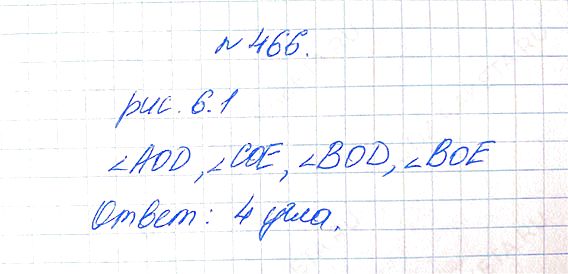 № 466.
рис. 6.1
∠AOD, ∠COE, ∠BOD, ∠BOE
Ответ: 4 угла.